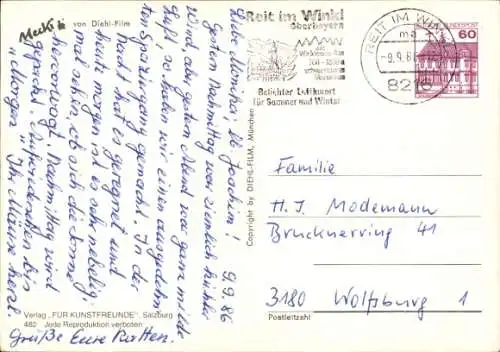 Mecki von Diehl-Film
Reit im Winkl
Oberbayern
Beliebter Luftkurort
für Sommer und Winter
REIT IM WINKL
ma
-9.9.86
8216
BUNDESPOST
60
9.9.86
Liebe Monika, lb. Joachim!
Gestern Nachmittag war ziemlich kühler
Wind, aber gestern Abend war ganz milde
Luft, so haben wir einen ausgedehn-
ten Spaziergang gemacht. In der
Nacht hat es geregnet und
heute morgen ist es sehr nebelig.
mal sehen, ob sich die Sonne
hervorwagt. Nachmittag wird
gepackt. Aufwiedersehen bis
"Morgen". Ihr Mäuse herzl.
Grüße Eure Ratten.
Copyright by DIEHL-FILM, München
Familie
H. J. Modemann
Brucknerring 41
3180 Wolfsburg 1
Postleitzahl
Verlag „FÜR KUNSTFREUNDE", Salzburg
482 Jede Reproduktion verboten